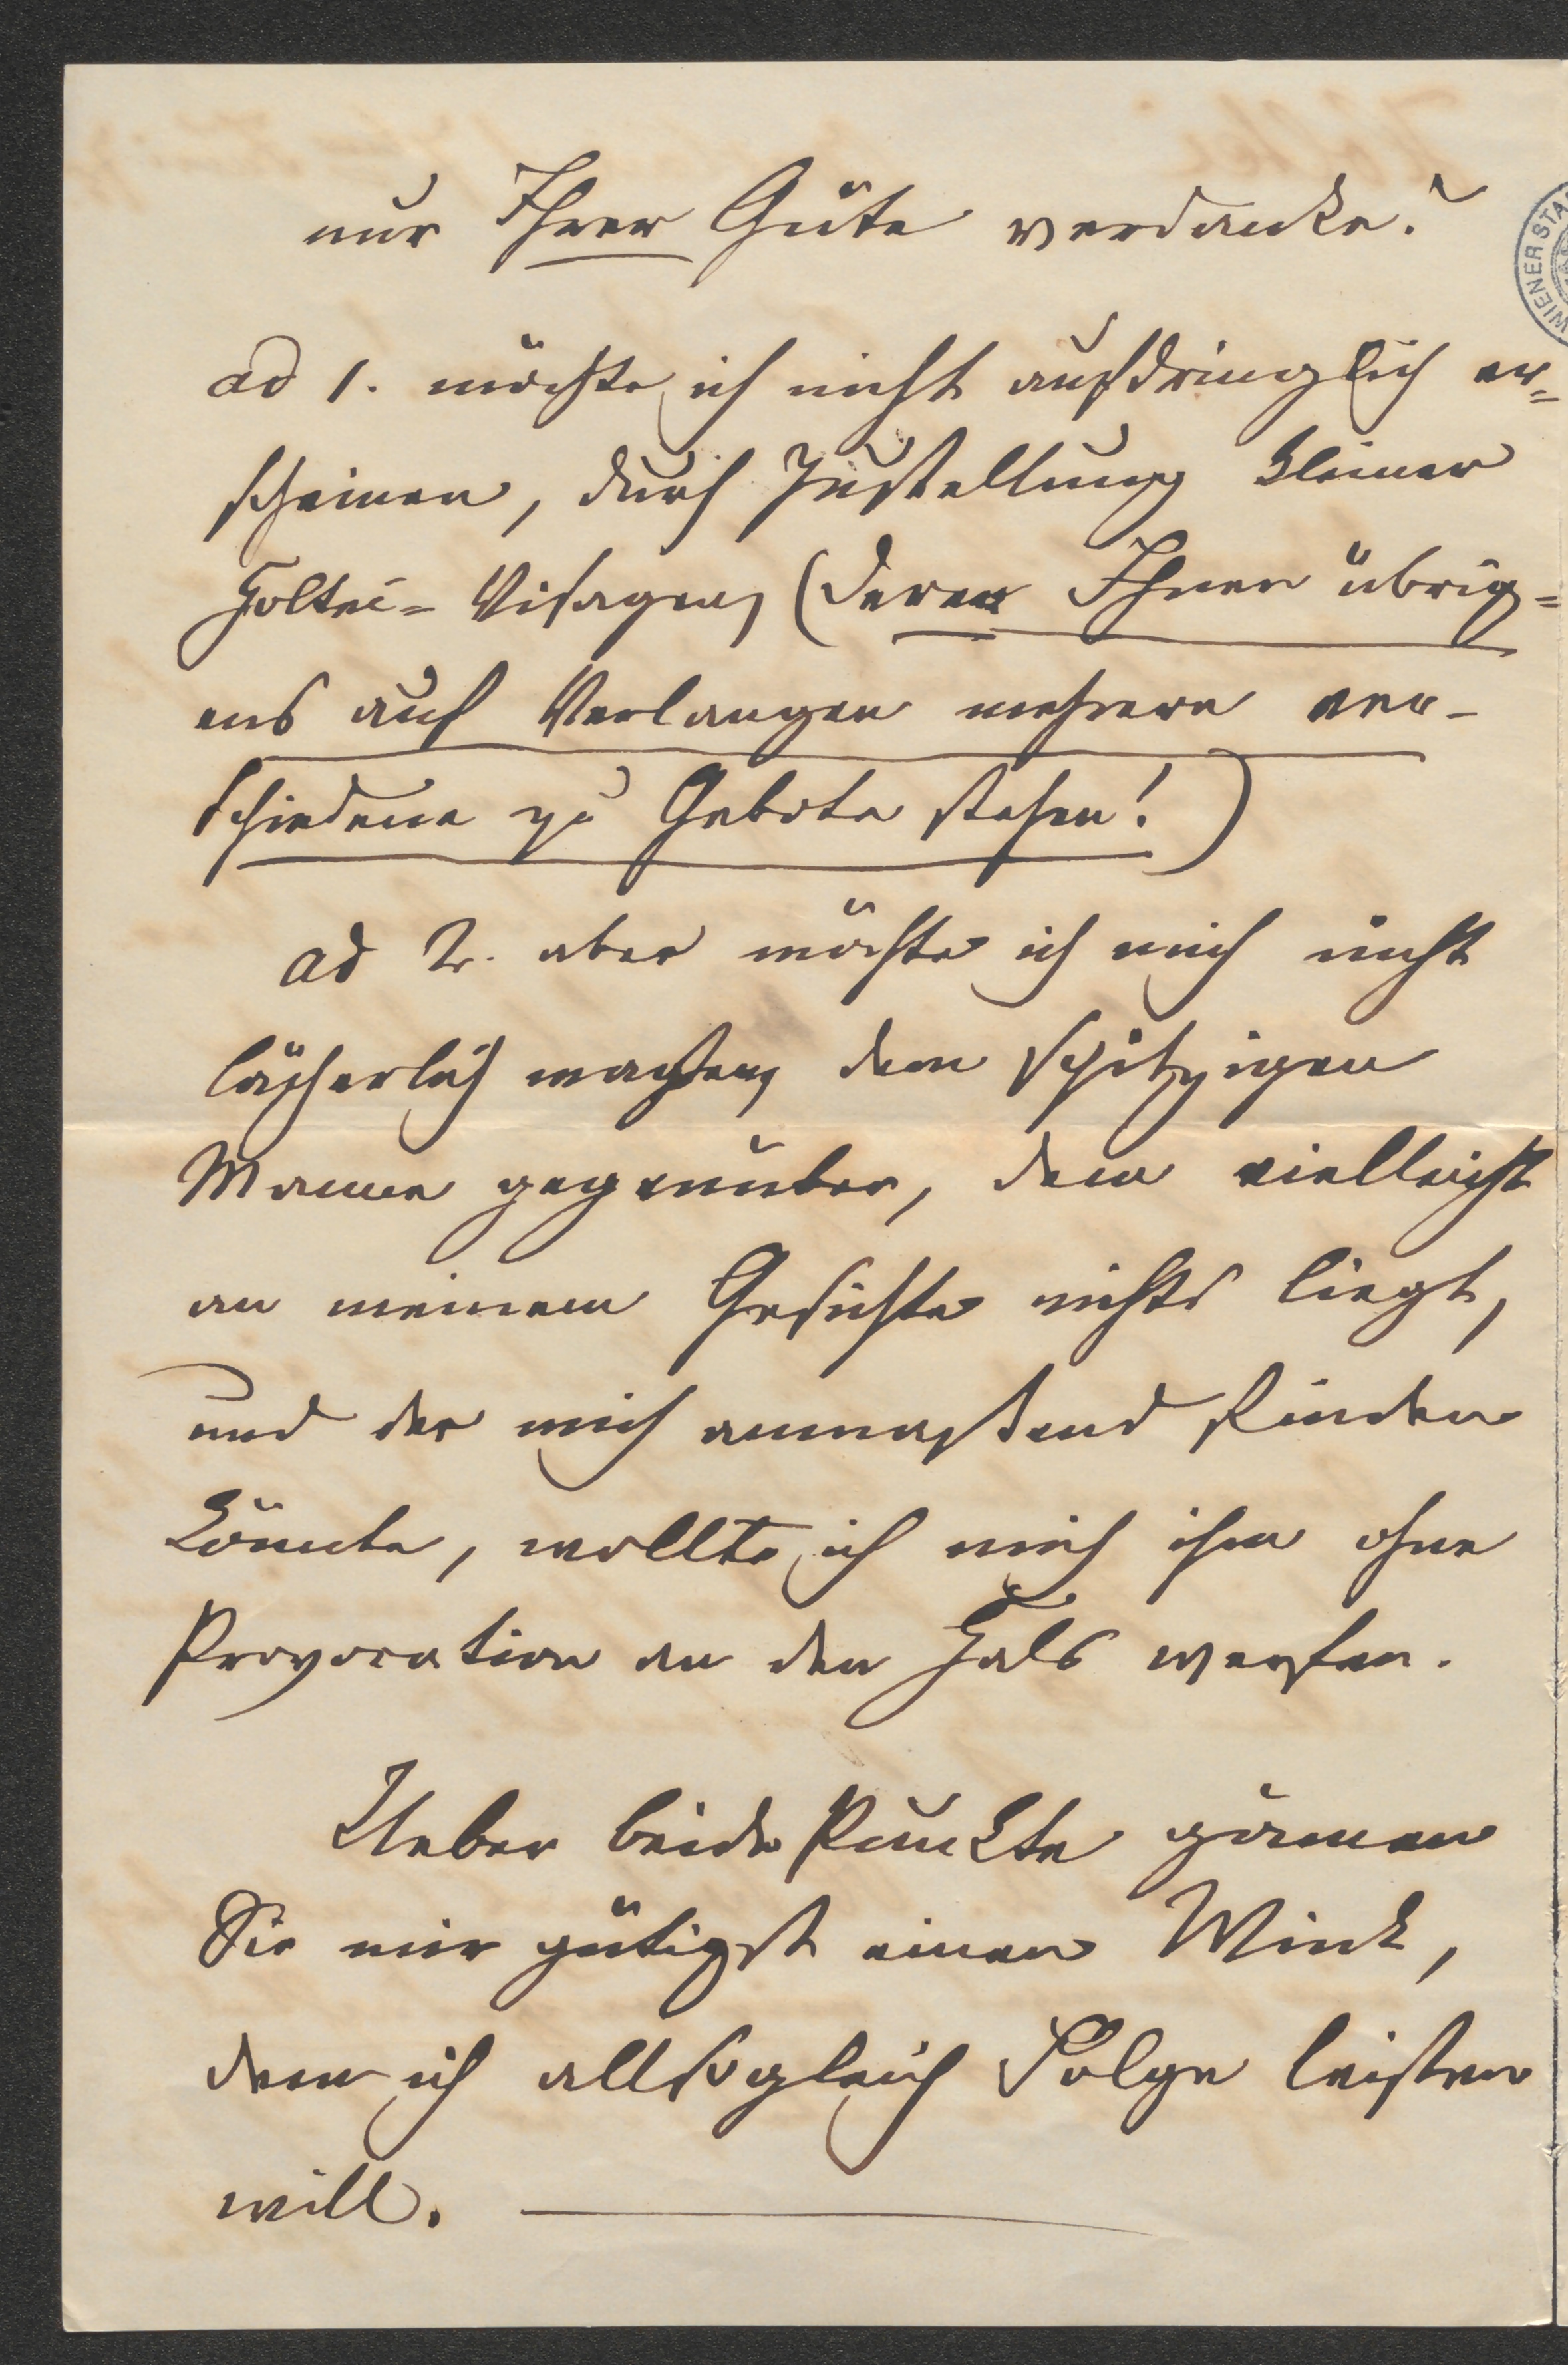 nur Ihrer Güte verdanke?
ad 1. möchte ich nicht aufdringlich er=
scheinen, durch Zustellung kleiner
Holtei-Visagen, (deren Ihnen übrig=
ens auf Verlangen mehrere ver-
schiedene zu Gebote stehen!)
ad 2. aber möchte ich mich nicht
lächerlich machen, dem spitzigen
Manne gegenüber, dem vielleicht
an meinem Gesichte nichts liegt,
und der mich anmaßend finden
könnte, wollte ich mich ihm ohne
Provocation an den Hals werfen.
Ueber beide Punkte gönnen
Sie mir gütigst einen Wink,
dem ich allsogleich Folge leisten
will.
WIENER STA